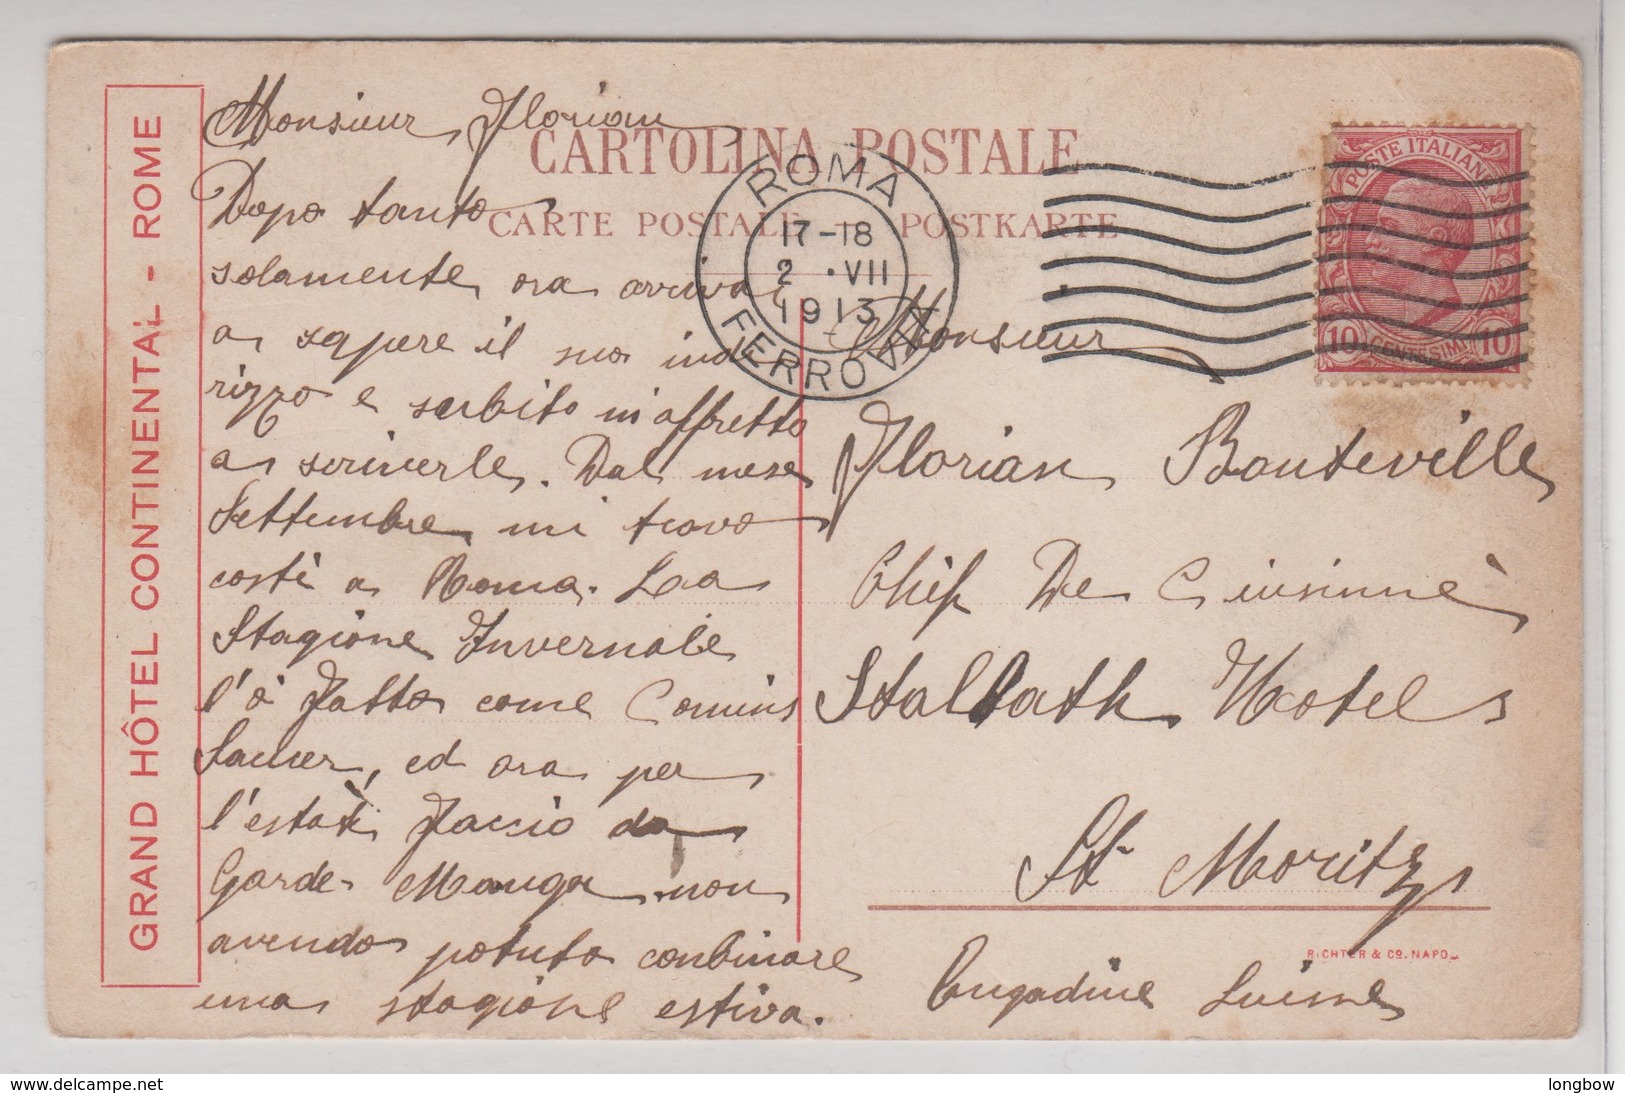 GRAND HÔTEL CONTINENTAL - ROME
CARTOLINA POSTALE
CARTE POSTALE POSTKARTE
ROMA
17-18
2 · VII
1913
FERROVIA
POSTE ITALIANE
10 CENTESIMI 10
Monsieur Florian
Dopo tanto
solamente ora arrivai
a sapere il suo indi
rizzo e subito m'affretto
a scriverle. Dal mese
Settembre mi trovo
costì a Roma. La
Stagione Invernale
l'ò fatto come Comins
Saucer, ed ora per
l'estate faccio da
Garde-Manga non
avendo potuto conbinare
una stagione estiva.
Monsieur
Florian Bonteville
Chef De Cuisine
Stalbath Hotel
St. Moritz
RICHTER & Co. NAPOLI
Engadine Suisse
longbow
www.delcampe.net